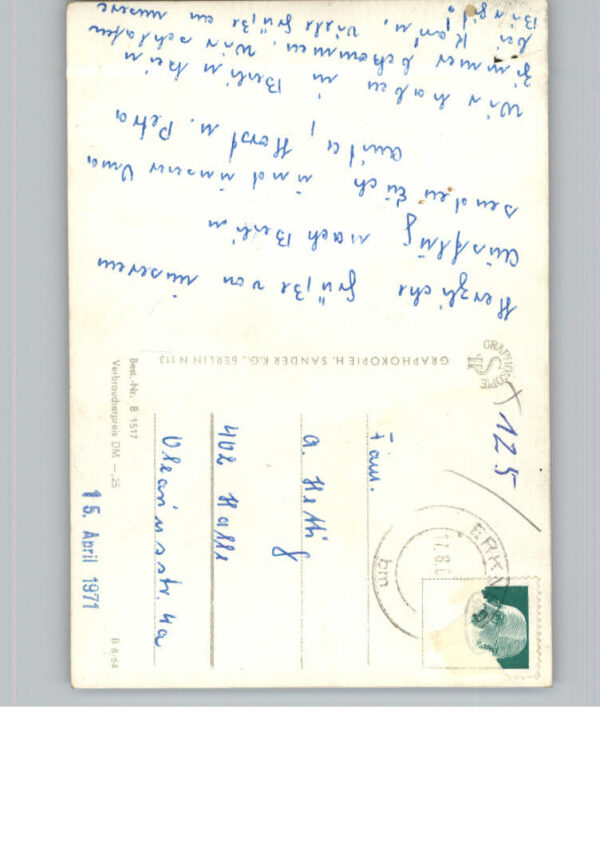 Herzliche Grüße von unserem
Ausflug nach Berlin
senden Euch und unserer Oma
Anita, Horst u. Petra
Wir haben in Berlin kein
Zimmer bekommen. Wir schlafen
bei Karin. Viele Grüße an unsere
Birgit!
GRAPHOKOPIE
GRAPHOKOPIE H. SANDER K.G., BERLIN N 113
Best.-Nr. B 1517
Verbraucherpreis DM —,25
125
ERKN
bm
Fam.
A. Hettig
402 Halle
Oleariusstr. 4a
15. April 1971
B 8/64